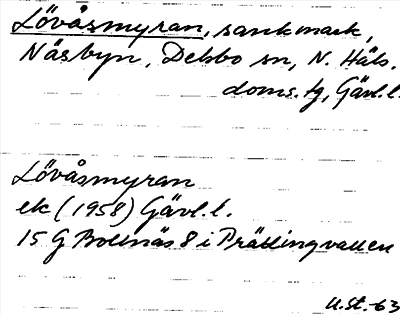 Lövåsmyran, sankmark,
Näsbyn, Delsbo sn, N. Häls.
doms.tg, Gävl.l.
Lövåsmyran
ek (1958) Gävl.l.
15 G Bollnäs 8 i Prästingvallen
U.St.-63